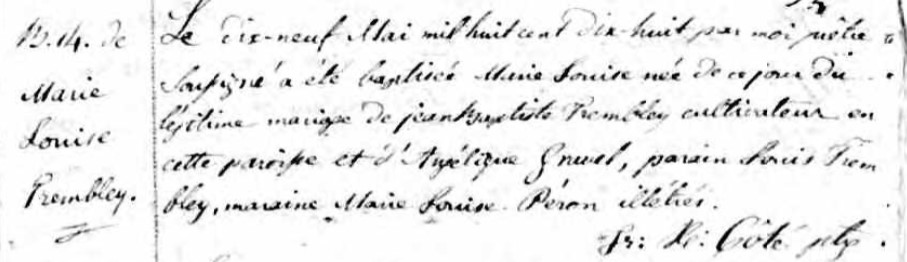 B. 14. de
Marie
Louise
Trembley.
Le dix-neuf Mai mil huit cent dix-huit par moi prêtre
Soussigné a été baptisée Marie Louise née de ce jour du
légitime mariage de jean Baptiste Trembley cultivateur en
cette paroisse et d'Angélique Gruel, parain Louis Trem
bley, maraine Marie Louise Péron illétrés.
Côté ptre.